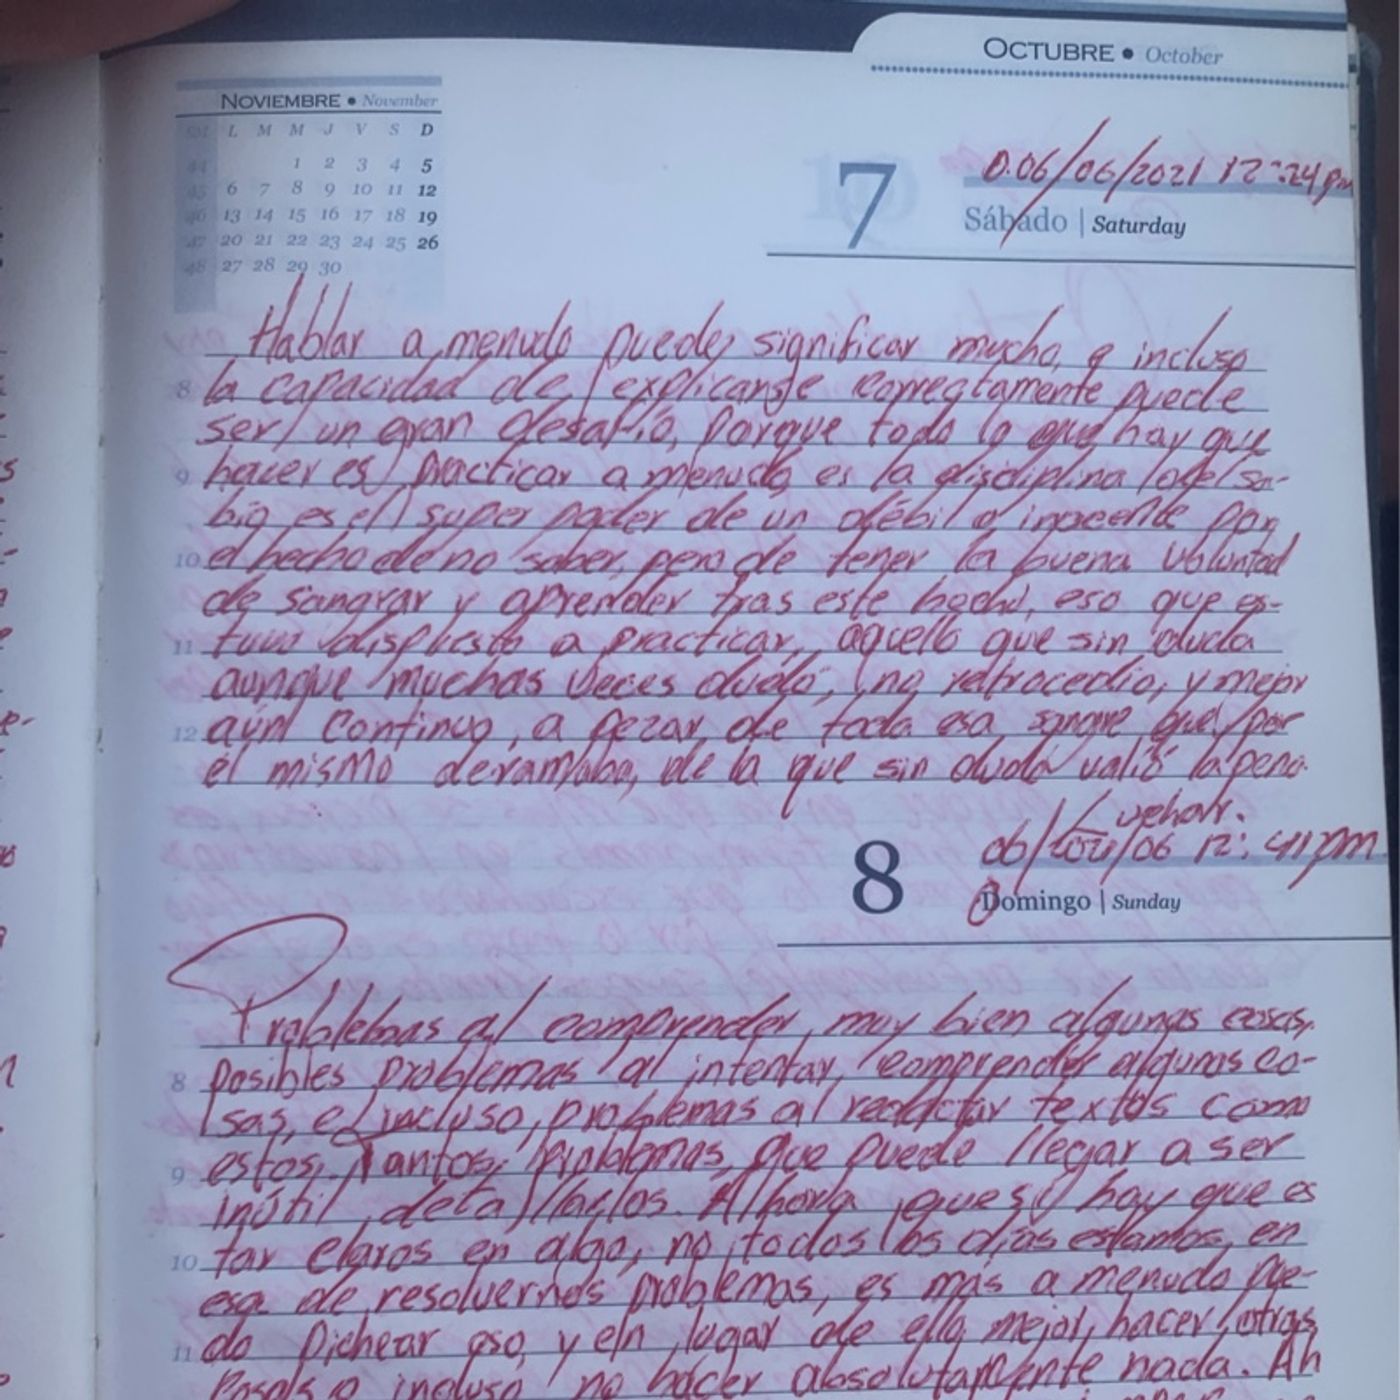 OCTUBRE • October
NOVIEMBRE • November
SM L M M J V S D
44 1 2 3 4 5
45 6 7 8 9 10 11 12
46 13 14 15 16 17 18 19
47 20 21 22 23 24 25 26
48 27 28 29 30
7
D.06/06/2021 12:24pm
Sábado | Saturday
Hablar a menudo puede significar mucho, e incluso
8 la capacidad de explicarse correctamente puede
ser un gran desafío, porque todo lo que hay que
9 hacer es practicar a menudo, es la disciplina del sa-
bio es el super poder de un débil o inocente por
10 el hecho de no saber, pero de tener la buena voluntad
de sangrar y aprender tras este hecho, eso que es-
11 tuvo dispuesto a practicar, aquello que sin duda
aunque muchas veces dudó, no retrocedio, y mejor
12 aún continuo, a pezar de toda esa sangre que por
él mismo deramaba, de la que sin duda valió la pena.
8
06/ /06 12:41pm
Domingo | Sunday
Problemas al comprender muy bien algunas cosas,
8 posibles problemas al intentar comprender algunas co-
sas, e incluso, problemas al redactar textos como
9 estos. Tantos problemas que puede llegar a ser
inútil detallarlos. Ahora que si hay que es
10 tar claros en algo, no todos los días estamos en
esa de resolvernos problemas, es más a menudo pue-
11 do pichear eso, y en lugar de ello mejor hacer otras
cosas o incluso no hacer absolutamente nada. Ah